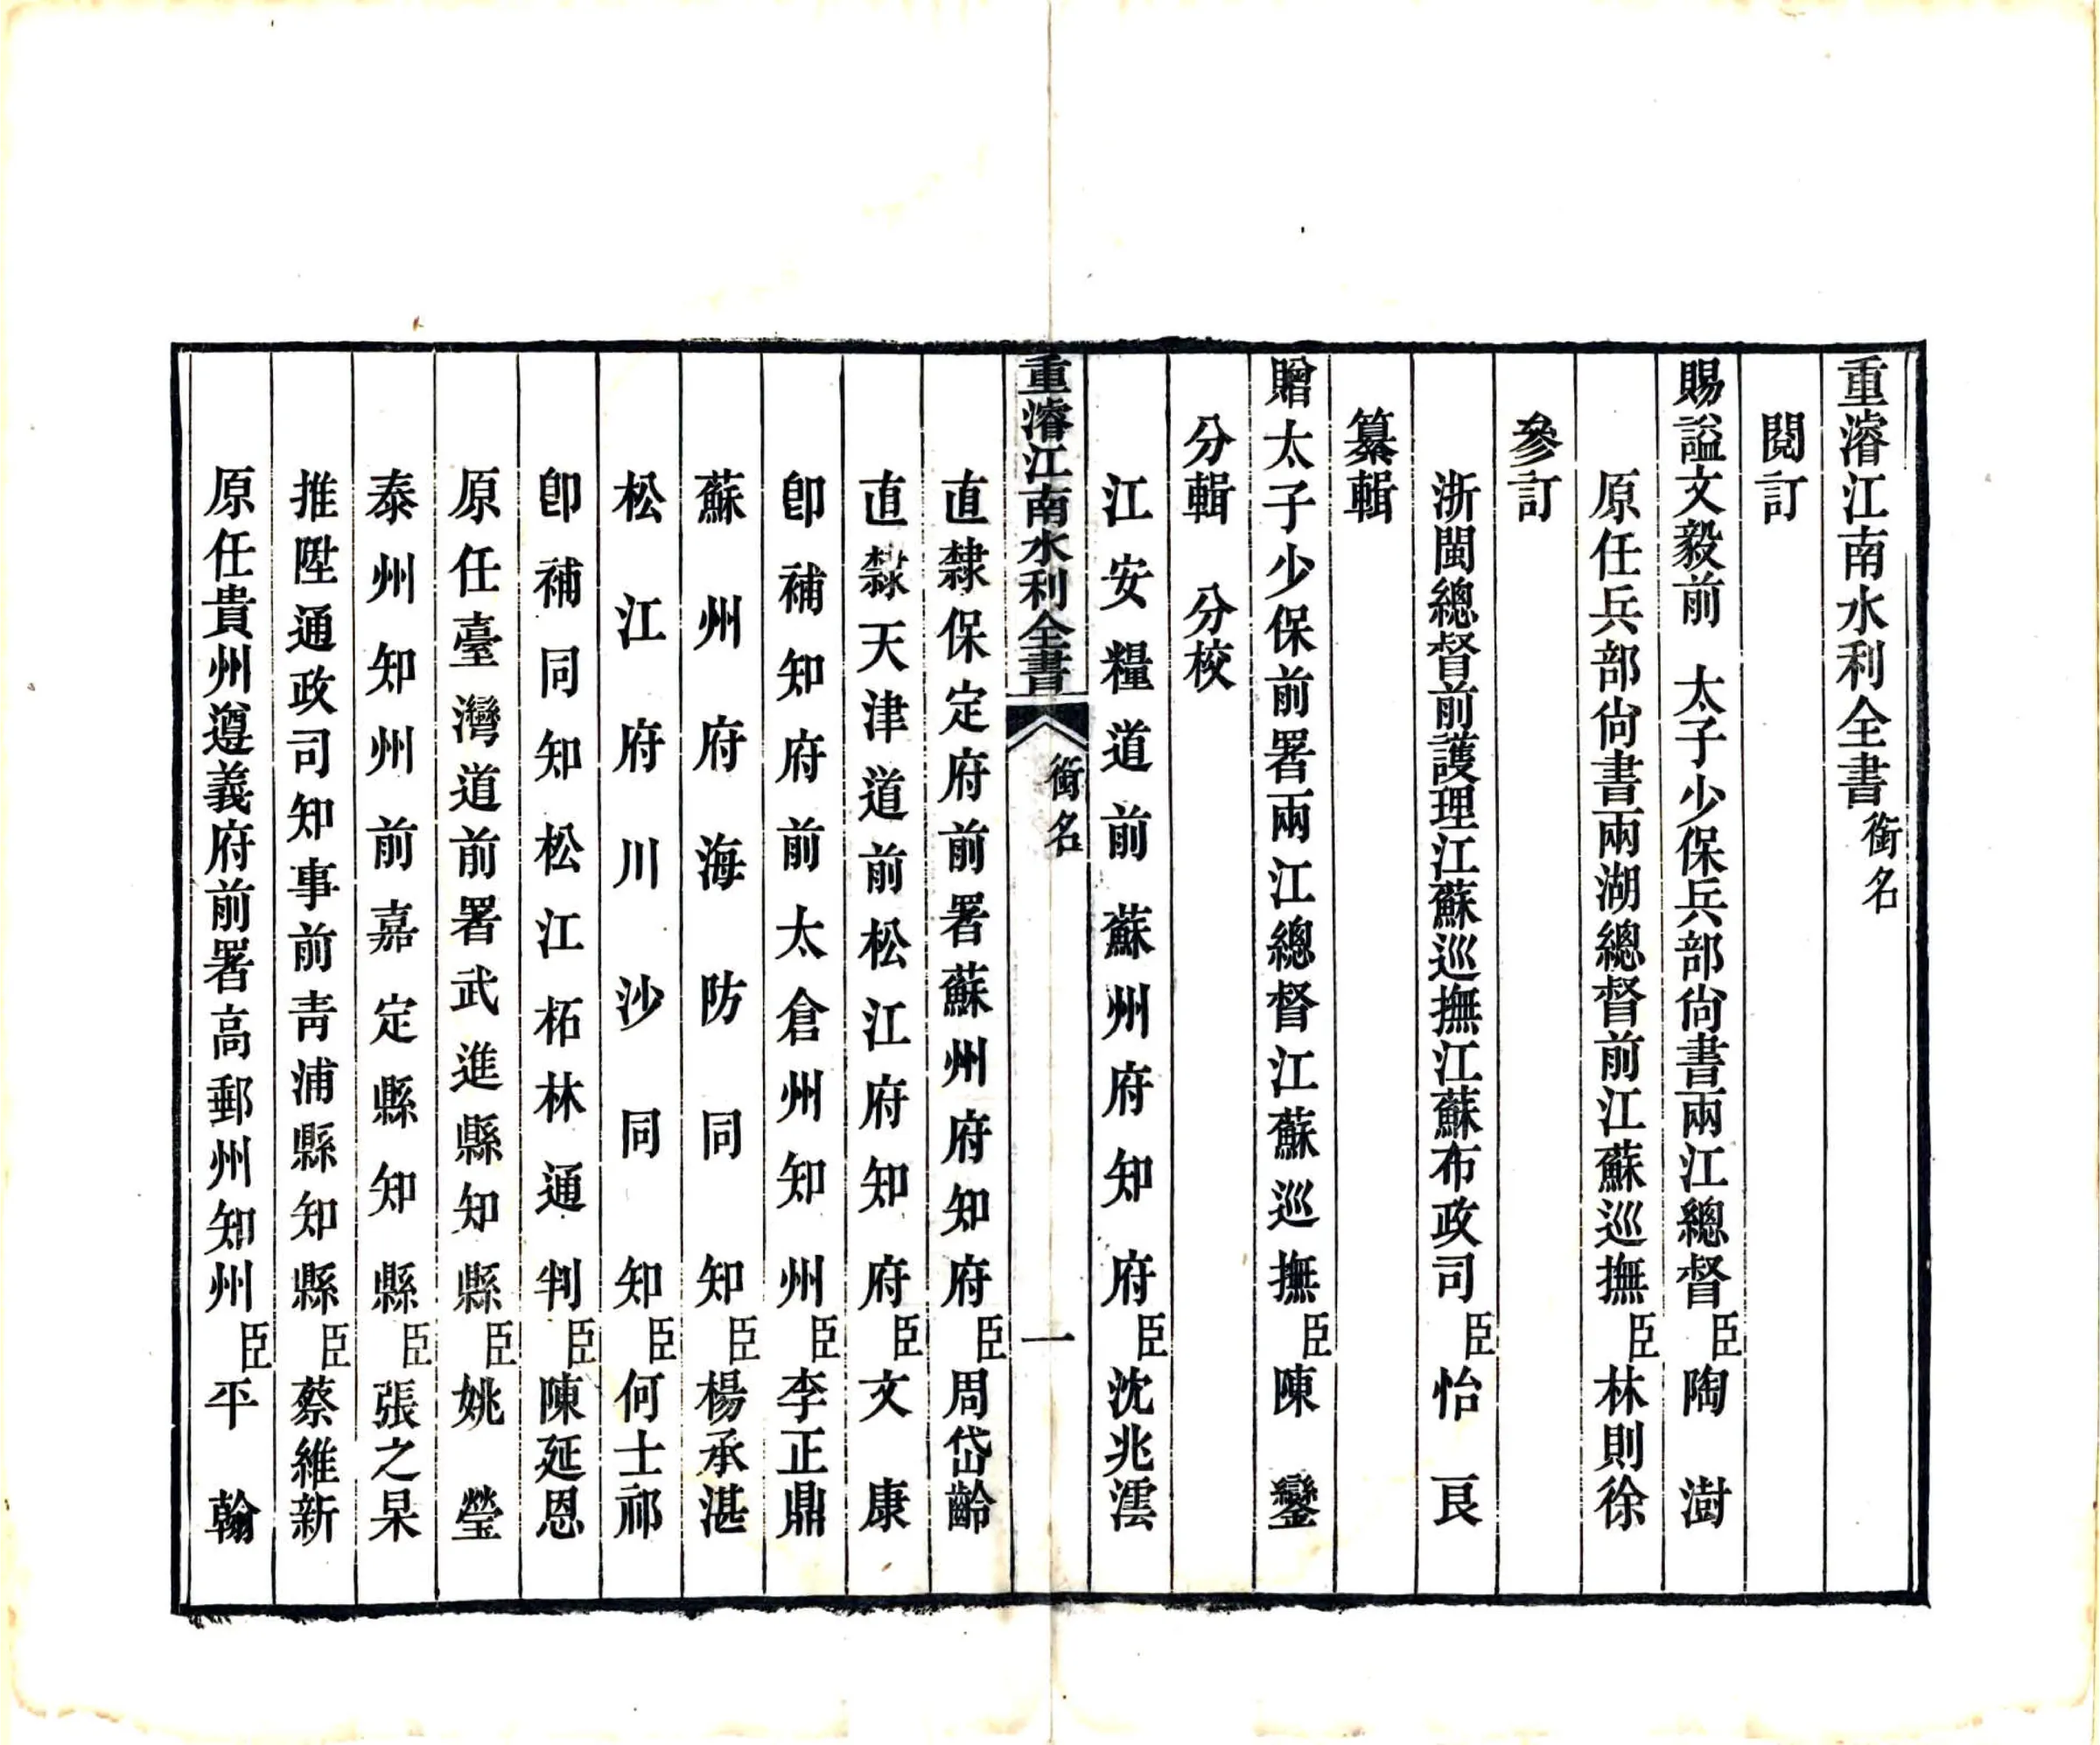 重濬江南水利全書 銜名
閱訂
賜諡文毅前 太子少保兵部尙書兩江總督臣陶 澍
原任兵部尙書兩湖總督前江蘇巡撫臣林則徐
參訂
浙閩總督前護理江蘇巡撫江蘇布政司臣怡 良
纂輯
贈太子少保前署兩江總督江蘇巡撫臣陳 鑾
分輯 分校
江安糧道前蘇州府知府臣沈兆澐
重濬江南水利全書 銜名 一
直隸保定府前署蘇州府知府臣周岱齡
直隸天津道前松江府知府臣文 康
卽補知府前太倉州知州臣李正鼎
蘇州府海防同知臣楊承湛
松江府川沙同知臣何士祁
卽補同知松江柘林通判臣陳延恩
原任臺灣道前署武進縣知縣臣姚 瑩
泰州知州前嘉定縣知縣臣張之杲
推陞通政司知事前靑浦縣知縣臣蔡維新
原任貴州遵義府前署高郵州知州臣平 翰